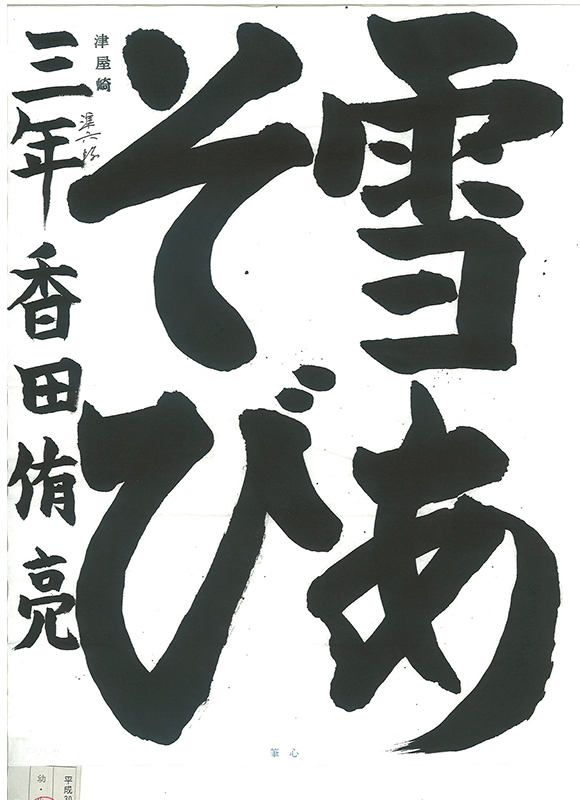 雪あ
そび
津屋崎
準六段
三年 香田侑亮
心筆
平成30
幼・